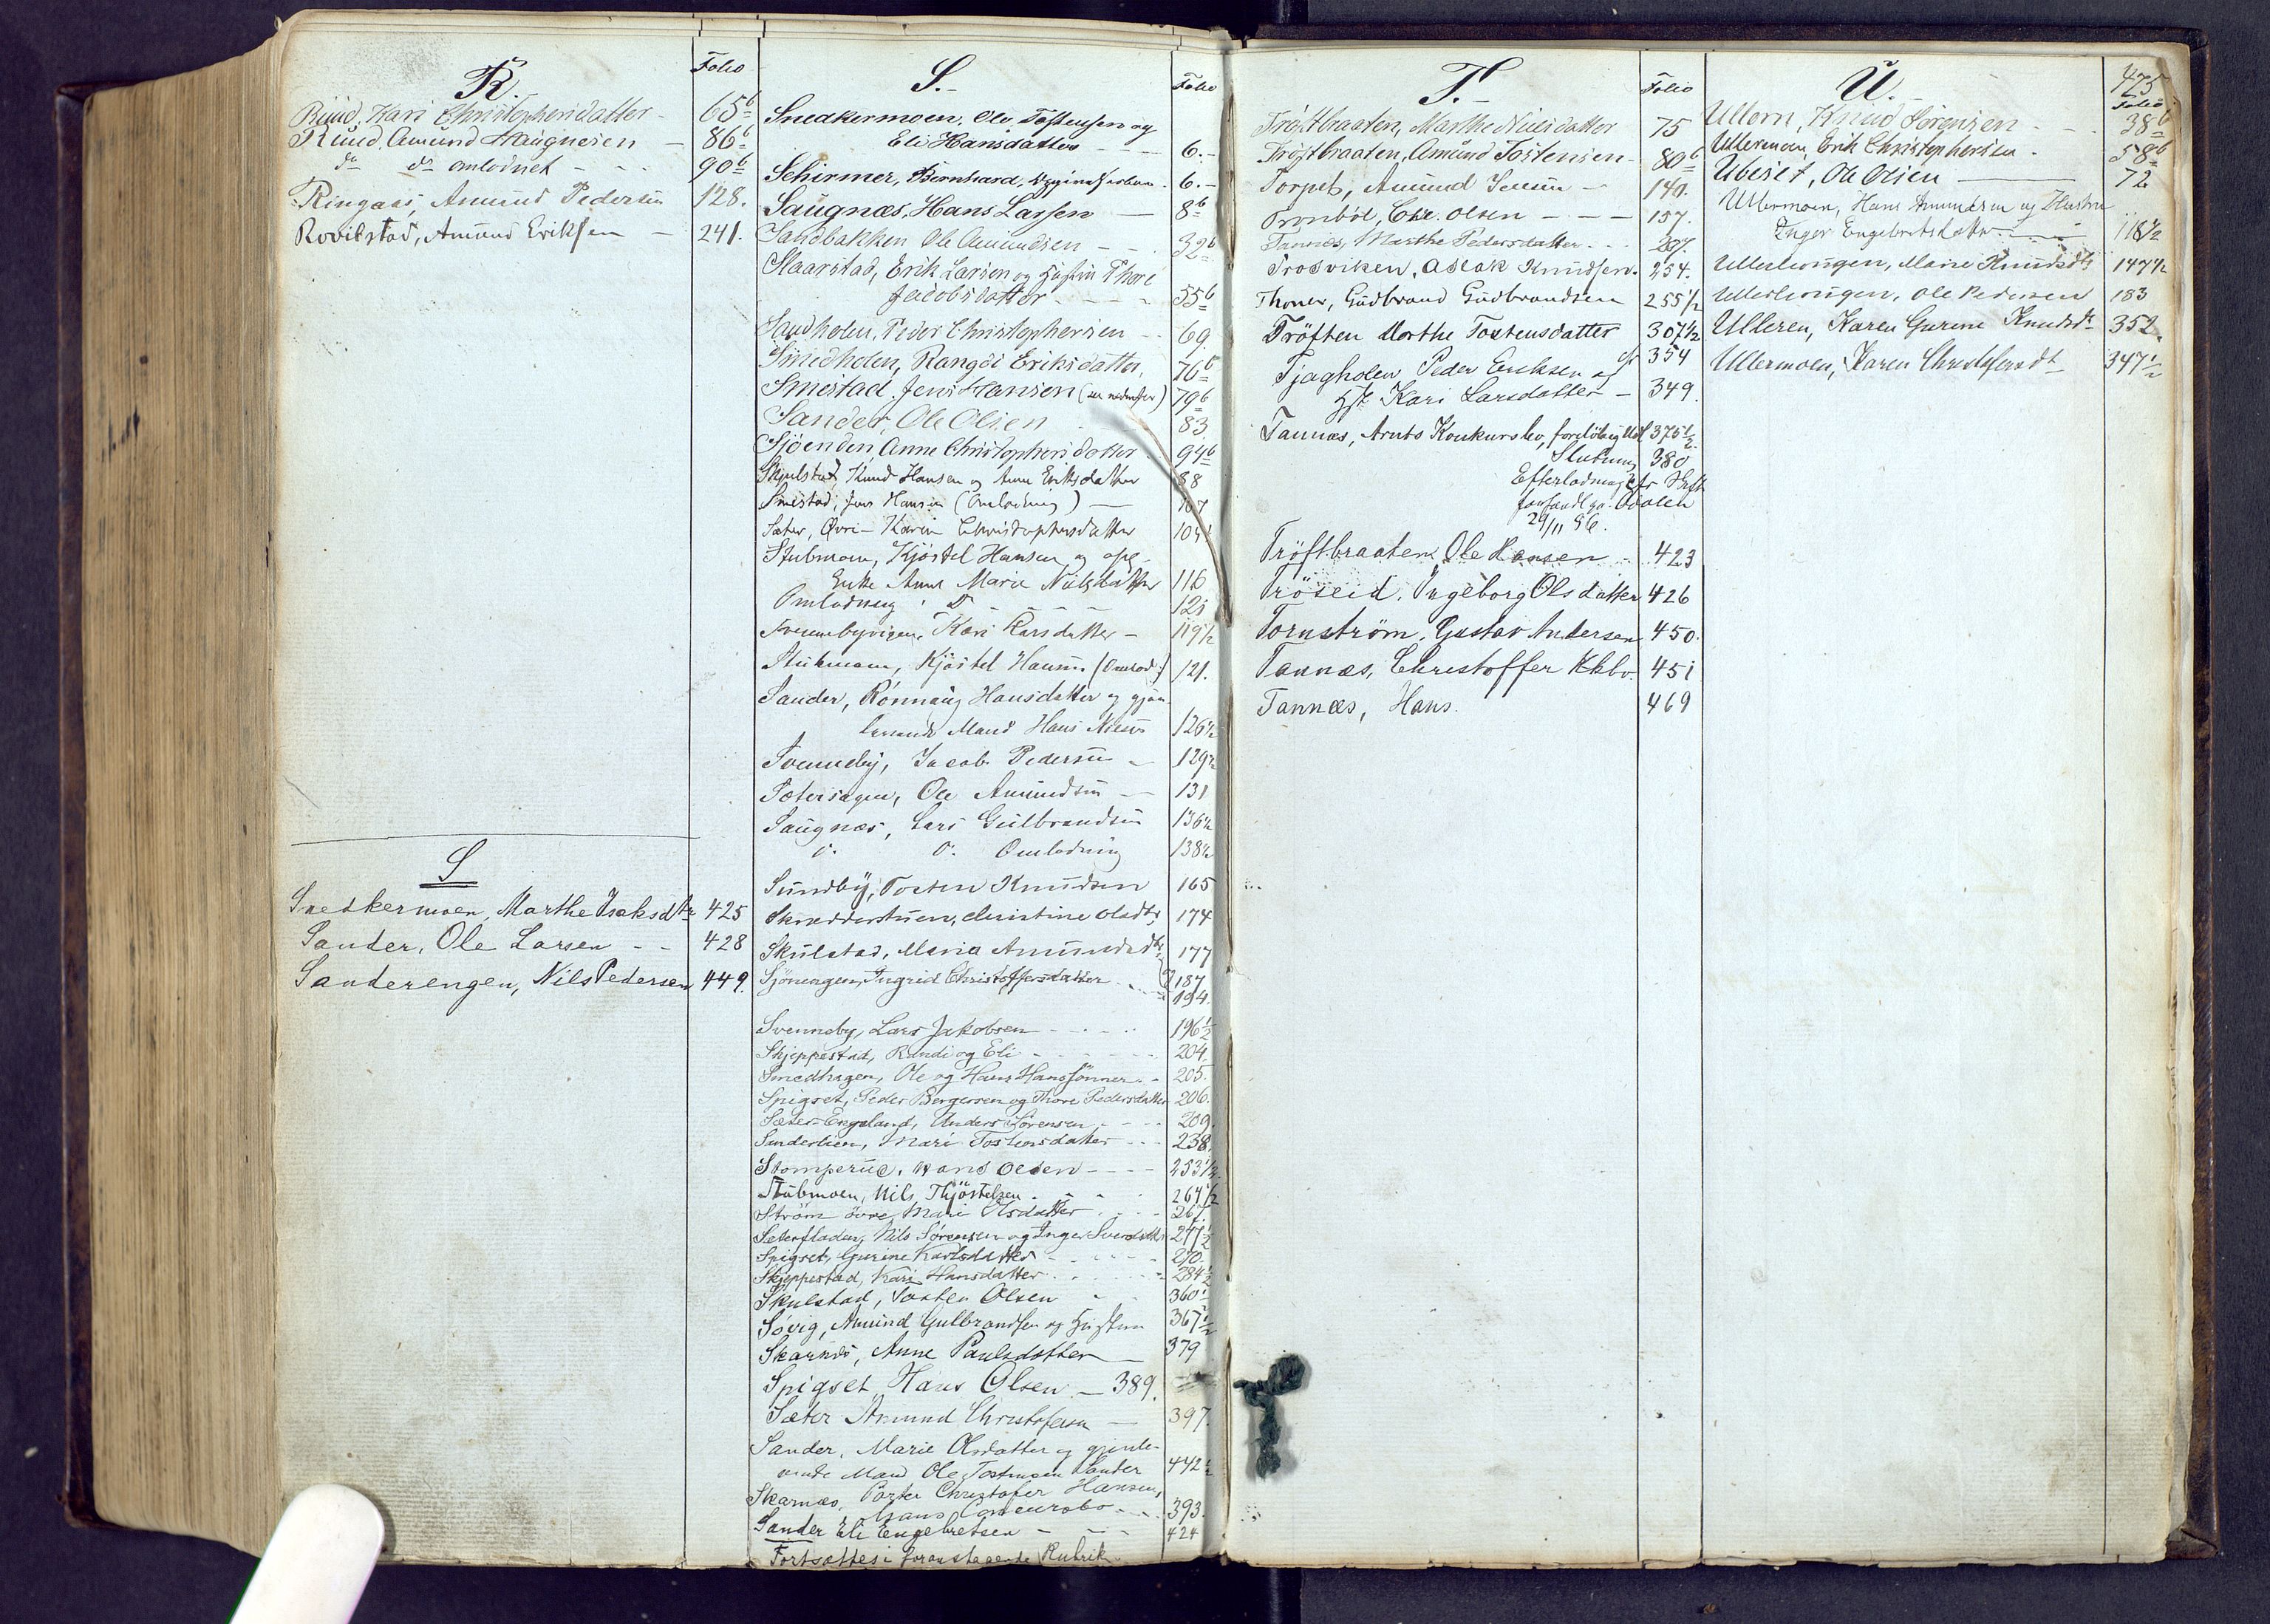 R.
Folio
Ruud, Kari Christophersdatter - 65b
Ruud, Amund Haugnesen - 86b
do do omlodnet - - - 90b
Ringaas, Amund Pedersen 128.
Rovilstad, Amund Eriksen - 241.
S
Snedkermoen, Marthe Isaksdtr 425
Sander, Ole Larsen - - 428
Sanderengen, Nils Pedersen 449.
S.-
Folio
Snedkermoen, Ole Tostensen og
Eli Hansdatter - - 6.-
Schirmer, Bernhard, 6.-
Saugnæs, Hans Larsen - 8b
Sandbakken Ole Amundsen - - 32b
Slaarstad, Erik Larsen og Hustru Thore
Jacobsdatter - - - - 55b
Sandholen, Peder Christophersen - - 69.
Smedholen, Rangdi Eriksdatter, 76b
Smestad, Jens Hansen (see nedenfor) 79b
Sander, Ole Olsen - 83
Sjöenden, Anne Christophersdatter 94b
Skjulstad, Knud Hansen og Anne Eriksdatter 88
Smestad, Jens Hansen (Omlodning) - 107
Sæter, Øvre - Karen Christophersdatter 104
Stubmoen, Kjöstel Hansen og
Enke Anne Marie Nielsdatter 116
Omlodning - - - - 121
Svennebyvigen, Kari Larsdatter - 119½
Stubmoen, Kjöstel Hansen (Omlod:) 121.
Sander, Rönnaug Hansdatter og gjen-
levende Mand Hans Nielsen 126½
Svenneby, Jacob Pedersen - 129½
Sætersagen, Ole Amundsen - 131
Saugnæs, Lars Gulbrandsen 136½
Omlodning 138½
Sundby, Tosten Knudsen 165
Skrædderstuen, Christine Olsdtr 174
Skulstad, Maria Amundsdtr, 177
Sjöenengen, Ingrid Christoffersdatter - - 187
194.
Svenneby, Lars Jakobsen - - - - 196½
Skjeppestad, Randi og Eli - - - - 204.
Smedhagen, Ole og Hans Hanssönner - - 205.
Spigset, Peder Bergersen og Thore Pedersdatter 206.
Sæter-Engeland, Anders Sörensen - - - 209.
Sanderlien, Mari Tostensdatter - - - 238.
Stomperud, Hans Olsen - - - - 253½
Stubmoen, Nils Thjöstelsen - - - 264½
Ström övre Mari Olsdatter - - - 267.
Sæterfladen, Nils Sörensen og Inger Svendsdtr 271½
Spigset, Gurine Karlsdatter - - - - 270.
Skjeppestad, Kari Hansdatter - - - - 284½
Skulstad, Tosten Olsen - - 360½
Sövig, Amund Gulbrandsen og Hustru 367½
Skarnæs, Anne Paulsdatter - 379
Spigset, Hans Olsen - 389.
Sæter Amund Christofersen - 397.
Sander, Marie Olsdatter og gjenle-
vende Mand Ole Tostensen Sander 442½
Skarnæs, Christofer Hansen,
hans Concursbo - - 393.
Sander Eli Engebretsen - - - 424
Fortsættes i foranstaaende Rubrik.
T.-
Folio
Tröftbraaten, Marthe Nielsdatter 75
Tröftbraaten, Amund Tostensen - 80b
Torpet, Amund Jensen - 140.
Tronböl, Chr. Olsen - - - 157.
Tannæs, Marthe Pedersdatter - - - 207.
Trosviken, Aslak Knudsen. 254.
Thoner, Gudbrand Gudbrandsen 255½
Tröften Marthe Tostensdatter 307½
Tjagholen Peder Eriksen og cfr 354
Hst. Kari Larsdatter - 349.
Tannæs, Arnts Konkursbo, foreløbig Udl 375½
Slutning 380
Efterlodning efr Heft
forhandl. pr. Odalen
29/11 96.
Tröftbraaten, Ole Hansen - 423
Tröseid, Ingeborg Olsdatter 426
Tornström, Gustav Andersen 450.
Tannæs, Christoffer Kkbo. 451
Tannæs, Hans. 469
U.-
475
Folio
Ullern, Knud Sörensen - - - 38b
Ullermoen, Erik Christophersen - 58b
Ubeset, Ole Olsen - 72
Ullermoen, Hans Amundsen og Hustru
Inger Engebretsdatter - - - 118½
Ullerhaugen, Marie Knudsdtr 147½
Ullerhaugen, Ole Pedersen 183
Ulleren, Karen Gurine Knudsdt 352.
Ullermoen, Karen Christofersdt 347½